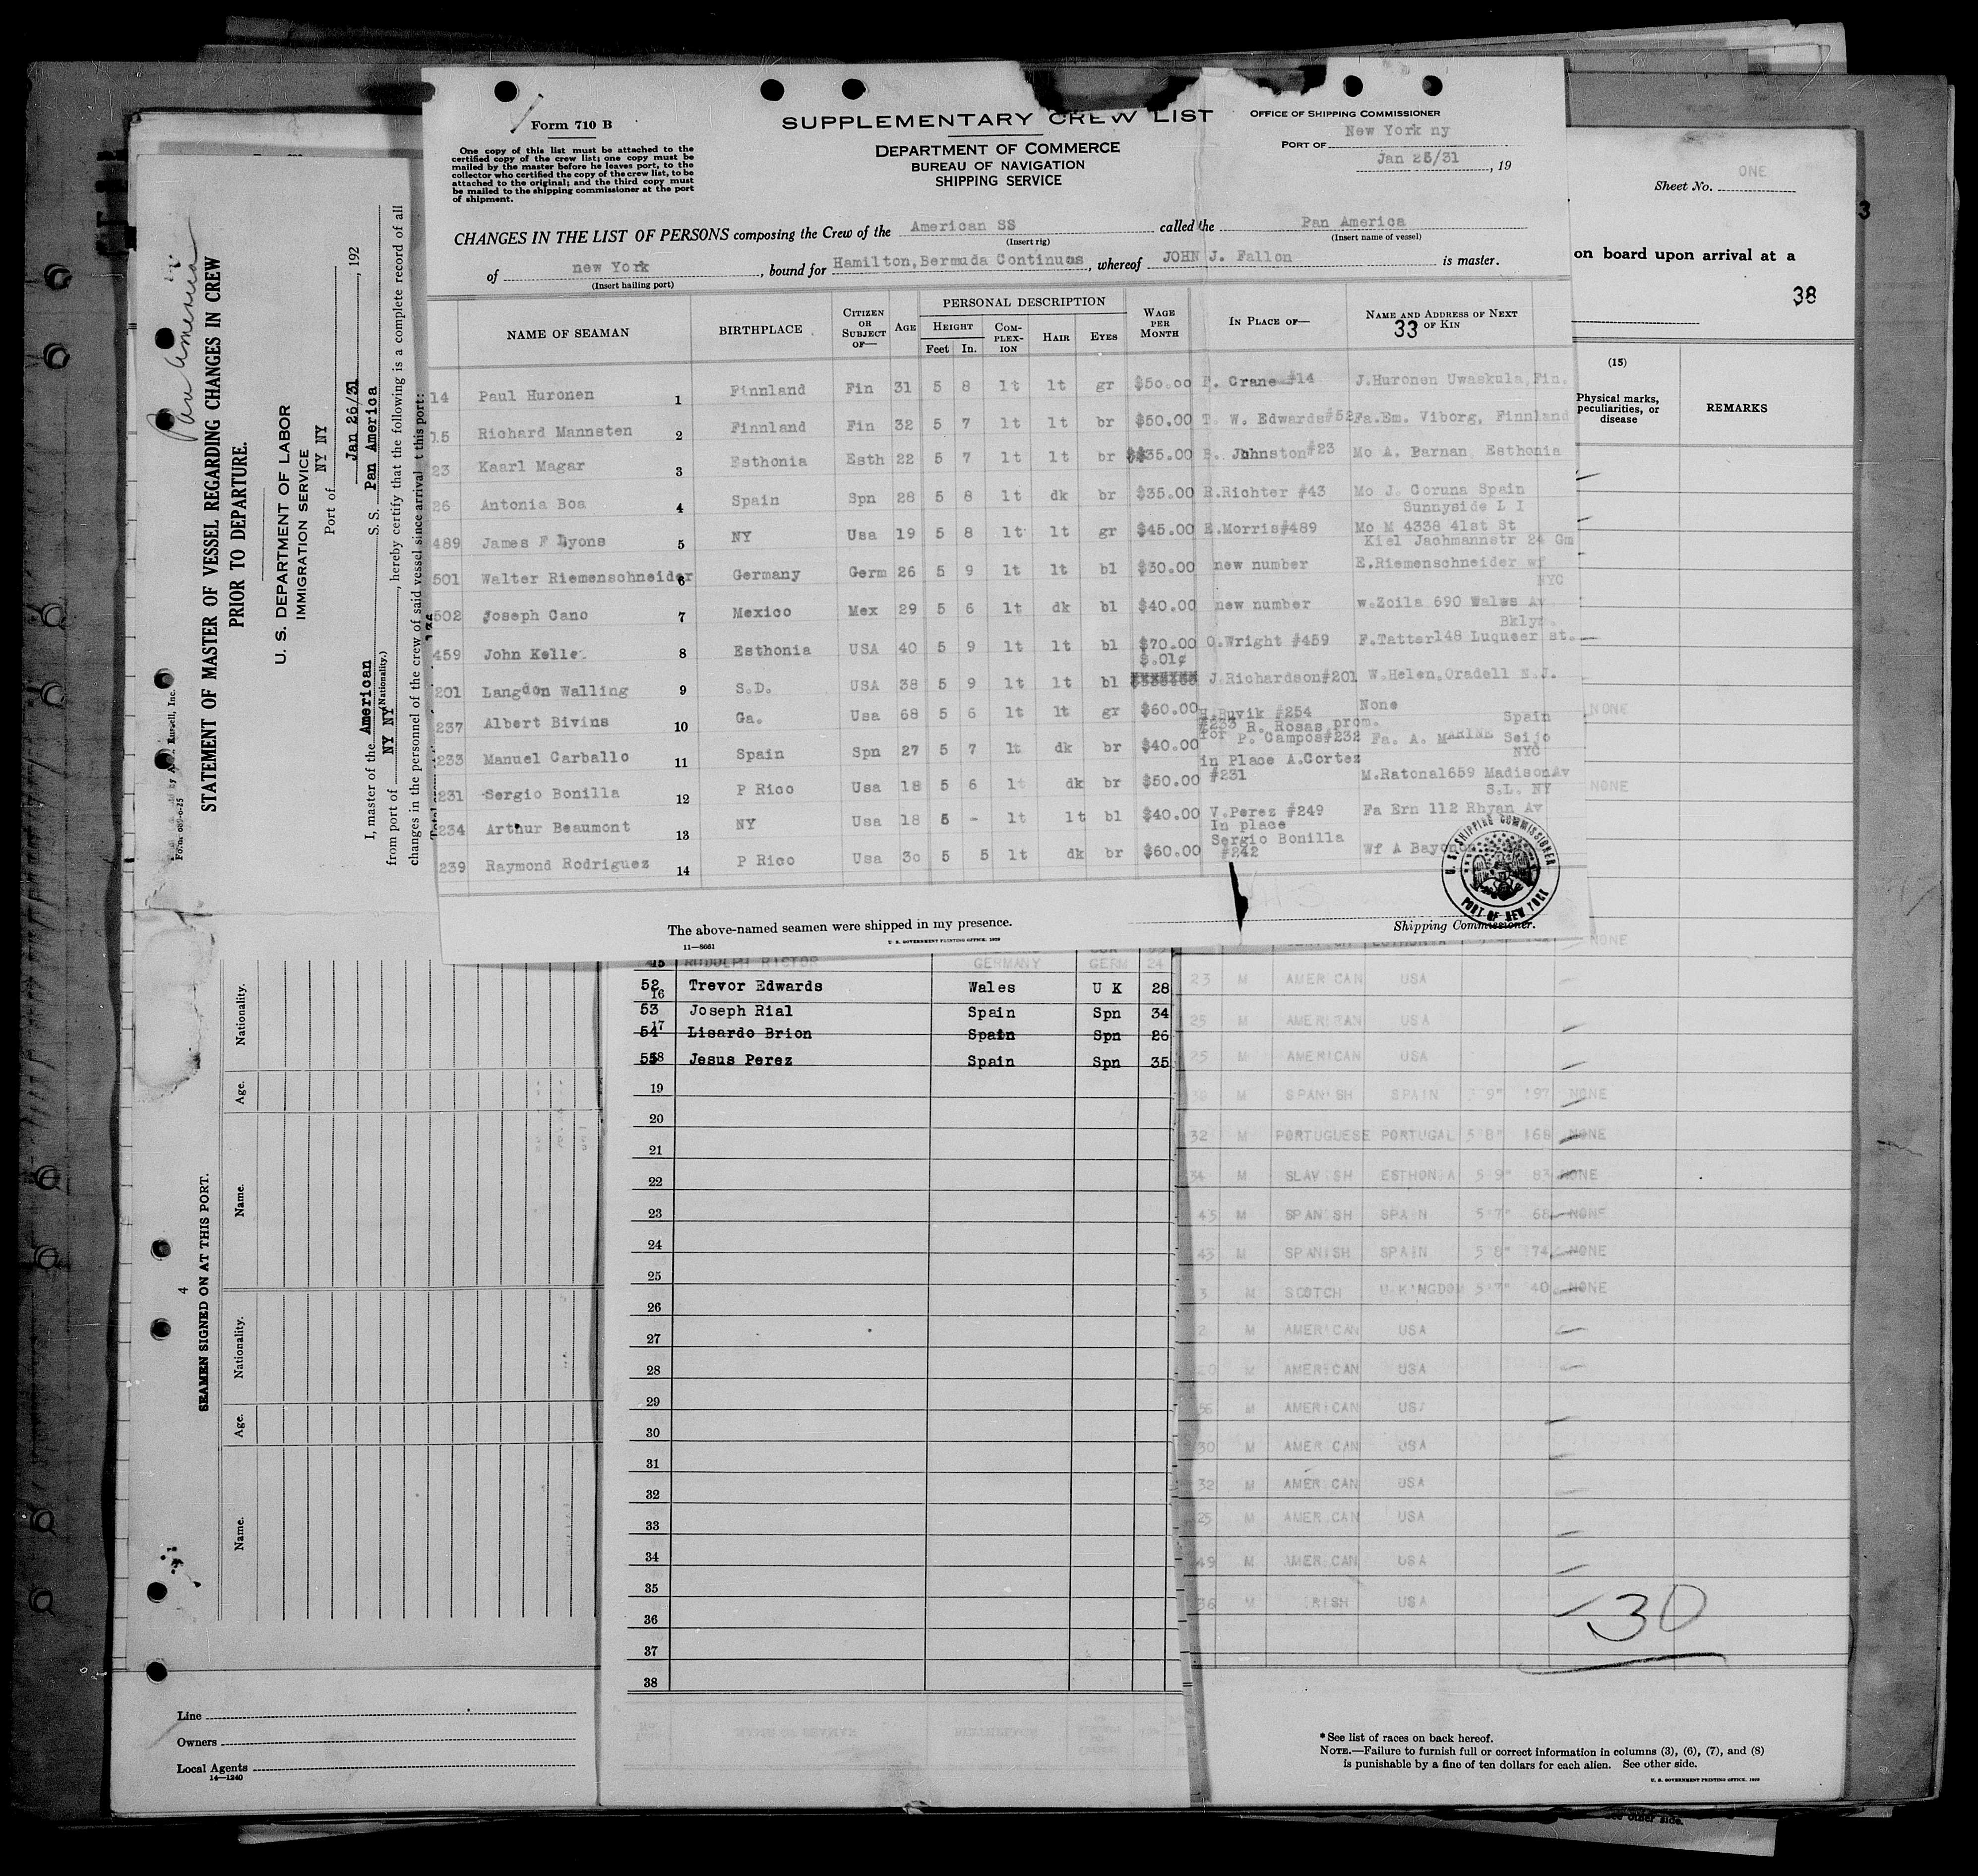 Form 710 B
One copy of this list must be attached to the
certified copy of the crew list; one copy must be
mailed by the master before he leaves port, to the
collector who certified the copy of the crew list, to be
attached to the original; and the third copy must
be mailed to the shipping commissioner at the port
of shipment.
SUPPLEMENTARY CREW LIST
DEPARTMENT OF COMMERCE
BUREAU OF NAVIGATION
SHIPPING SERVICE
OFFICE OF SHIPPING COMMISSIONER
New York ny
PORT OF
Jan 26/31 , 19
CHANGES IN THE LIST OF PERSONS composing the Crew of the American SS called the Pan America
(Insert rig) (Insert name of vessel)
of new York , bound for Hamilton,Bermuda Continuos , whereof JOHN J. Fallon is master.
(Insert hailing port)
NAME OF SEAMAN BIRTHPLACE CITIZEN OR SUBJECT OF— AGE PERSONAL DESCRIPTION HEIGHT Feet In. COMPLEXION HAIR EYES WAGE PER MONTH IN PLACE OF— NAME AND ADDRESS OF NEXT OF KIN
33
14 Paul Huronen 1 Finnland Fin 31 5 8 lt lt gr $50.00 F. Crane #14 J.Huronen Uwaskula,Fin.
15 Richard Mannsten 2 Finnland Fin 32 5 7 lt lt br $50.00 T. W. Edwards#52 Fa.Em. Viborg, Finnland
23 Kaarl Magar 3 Esthonia Esth 22 5 7 lt lt br $$35.00 B. Johnston#23 Mo A. Parnan Esthonia
26 Antonia Boa 4 Spain Spn 28 5 8 lt dk br $35.00 R.Richter #43 Mo J. Coruna Spain
Sunnyside L I
489 James F Lyons 5 NY Usa 19 5 8 lt lt gr $45.00 E.Morris#489 Mo M 4338 41st St
Kiel Jachmannstr 24 Gm
501 Walter Riemenschneider 6 Germany Germ 26 5 9 lt lt bl $30.00 new number E.Riemenschneider wf
NYC
502 Joseph Cano 7 Mexico Mex 29 5 6 lt dk bl $40.00 new number w.Zoila 690 Wales Av
Bklyn.
459 John Keller 8 Esthonia USA 40 5 9 lt lt bl $70.00 O.Wright #459 F.Tatter148 Luqueer st.
$.01¢
201 Langdon Walling 9 S.D. USA 38 5 9 lt lt bl J.Richardson#201 W.Helen,Oradell N.J.
237 Albert Bivins 10 Ga. Usa 68 5 6 lt lt gr $60.00 H.Buvik #254 None
#233 R. Rosas prom. Spain
233 Manuel Carballo 11 Spain Spn 27 5 7 lt dk br $40.00 for P. Campos#232 Fa. A. MARINE Seijo
in Place A.Cortez NYC
231 Sergio Bonilla 12 P Rico Usa 18 5 6 lt dk br $50.00 #231 M.Ratona1659 MadisonAv
S.L. NY
234 Arthur Beaumont 13 NY Usa 18 5 - lt lt bl $40.00 V.Perez #249 Fa Ern 112 Rhyan Av
In place
Sergio Bonilla
239 Raymond Rodriguez 14 P Rico Usa 30 5 5 lt dk br $60.00 #242 Wf A
The above-named seamen were shipped in my presence.
11—8661 U. S. GOVERNMENT PRINTING OFFICE: 1929
Shipping Commissioner.
U. S. SHIPPING COMMISSIONER
PORT OF NEW YORK
Sheet No. ONE
3
on board upon arrival at a
38
(15)
Physical marks,
peculiarities, or
disease
REMARKS
NONE
NONE
NONE
Pan America
STATEMENT OF MASTER OF VESSEL REGARDING CHANGES IN CREW
PRIOR TO DEPARTURE.
U. S. DEPARTMENT OF LABOR
IMMIGRATION SERVICE
Port of NY NY
Jan 26/31 , 192
I, master of the American S. S. Pan America
(Nationality.)
from port of NY NY , hereby certify that the following is a complete record of all
changes in the personnel of the crew of said vessel since arrival at this port:
4
SEAMEN SIGNED ON AT THIS PORT.
Name. Age. Nationality. Name. Age. Nationality.
Line
Owners
Local Agents
14—1240
15 RUDOLPH RICTOR GERMANY GERM 24
52 16 Trevor Edwards Wales U K 28
53 Joseph Rial Spain Spn 34
54 17 Lisardo Brion Spain Spn 26
55 18 Jesus Perez Spain Spn 35
19
20
21
22
23
24
25
26
27
28
29
30
31
32
33
34
35
36
37
38
23 M AMERICAN USA
25 M AMERICAN USA
25 M AMERICAN USA
30 M SPANISH SPAIN 9" 197 NONE
32 M PORTUGUESE PORTUGAL 5 8" 168 NONE
34 M SLAVISH ESTHONIA 5 9" 83 NONE
45 M SPANISH SPAIN 5 7" 68 NONE
43 M SPANISH SPAIN 5 8" 74 NONE
3 M SCOTCH U-KINGDOM 5 7" 40 NONE
2 M AMERICAN USA
20 M AMERICAN USA
56 M AMERICAN USA
30 M AMERICAN USA
32 M AMERICAN USA
25 M AMERICAN USA
49 M AMERICAN USA
36 M IRISH USA
30
*See list of races on back hereof.
NOTE.—Failure to furnish full or correct information in columns (3), (6), (7), and (8)
is punishable by a fine of ten dollars for each alien. See other side.
U. S. GOVERNMENT PRINTING OFFICE: 1929
other side.